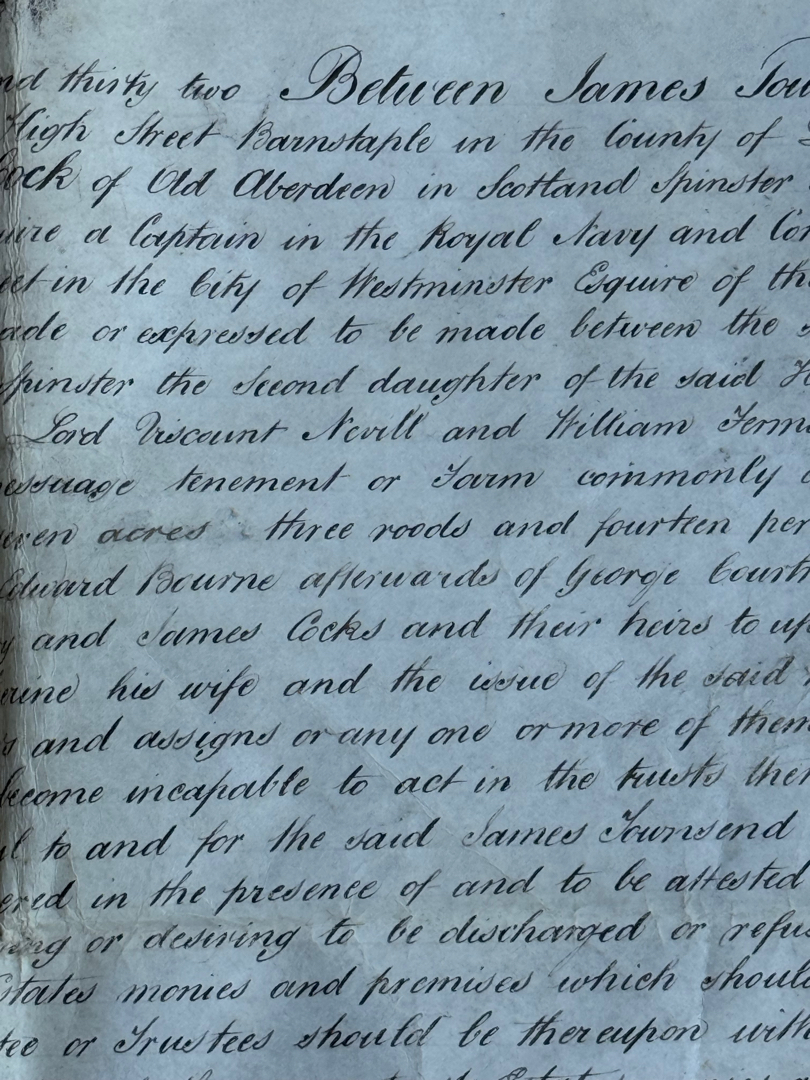 nd thirty two Between James Tow
High Street Barnstaple in the County of
cock of Old Aberdeen in Scotland Spinster
uire a Captain in the Royal Navy and Con
eet in the City of Westminster Esquire of the
ade or expressed to be made between the s
Spinster the Second daughter of the said H
Lord Viscount Nevill and William Ferm
essuage tenement or Farm commonly c
even acres three roods and fourteen per
Edward Bourne afterwards of George Court
y and James Cocks and their heirs to up
erine his wife and the issue of the said
s and assigns or any one or more of them
become incapable to act in the trusts ther
ul to and for the said James Townsend
ered in the presence of and to be attested
ing or desiring to be discharged or refus
Estates monies and premises which should
tee or Trustees should be thereupon with